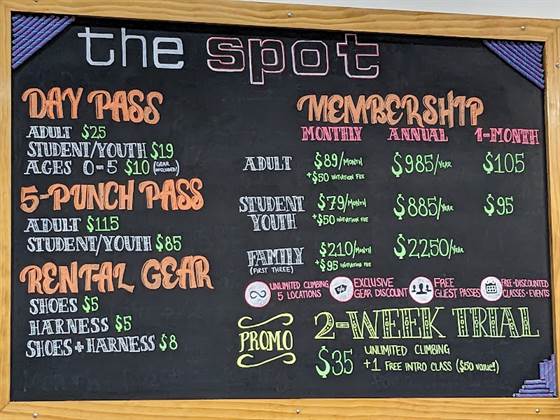 the spot
DAY PASS
ADULT $25
STUDENT/YOUTH $19
AGES 0-5 $10 (GEAR INCLUDED!)
5-PUNCH PASS
ADULT $115
STUDENT/YOUTH $85
RENTAL GEAR
SHOES $5
HARNESS $5
SHOES + HARNESS $8
MEMBERSHIP
MONTHLY ANNUAL 1-MONTH
ADULT $89/MONTH +$50 INITIATION FEE $985/YEAR $105
STUDENT YOUTH $79/MONTH +$50 INITIATION FEE $885/YEAR $95
FAMILY (FIRST THREE) $210/MONTH +$95 INITIATION FEE $2250/YEAR
UNLIMITED CLIMBING 5 LOCATIONS
EXCLUSIVE GEAR DISCOUNT
FREE GUEST PASSES
FREE+DISCOUNTED CLASSES+EVENTS
PROMO
2-WEEK TRIAL
$35 UNLIMITED CLIMBING
+1 FREE INTRO CLASS ($50 value!)